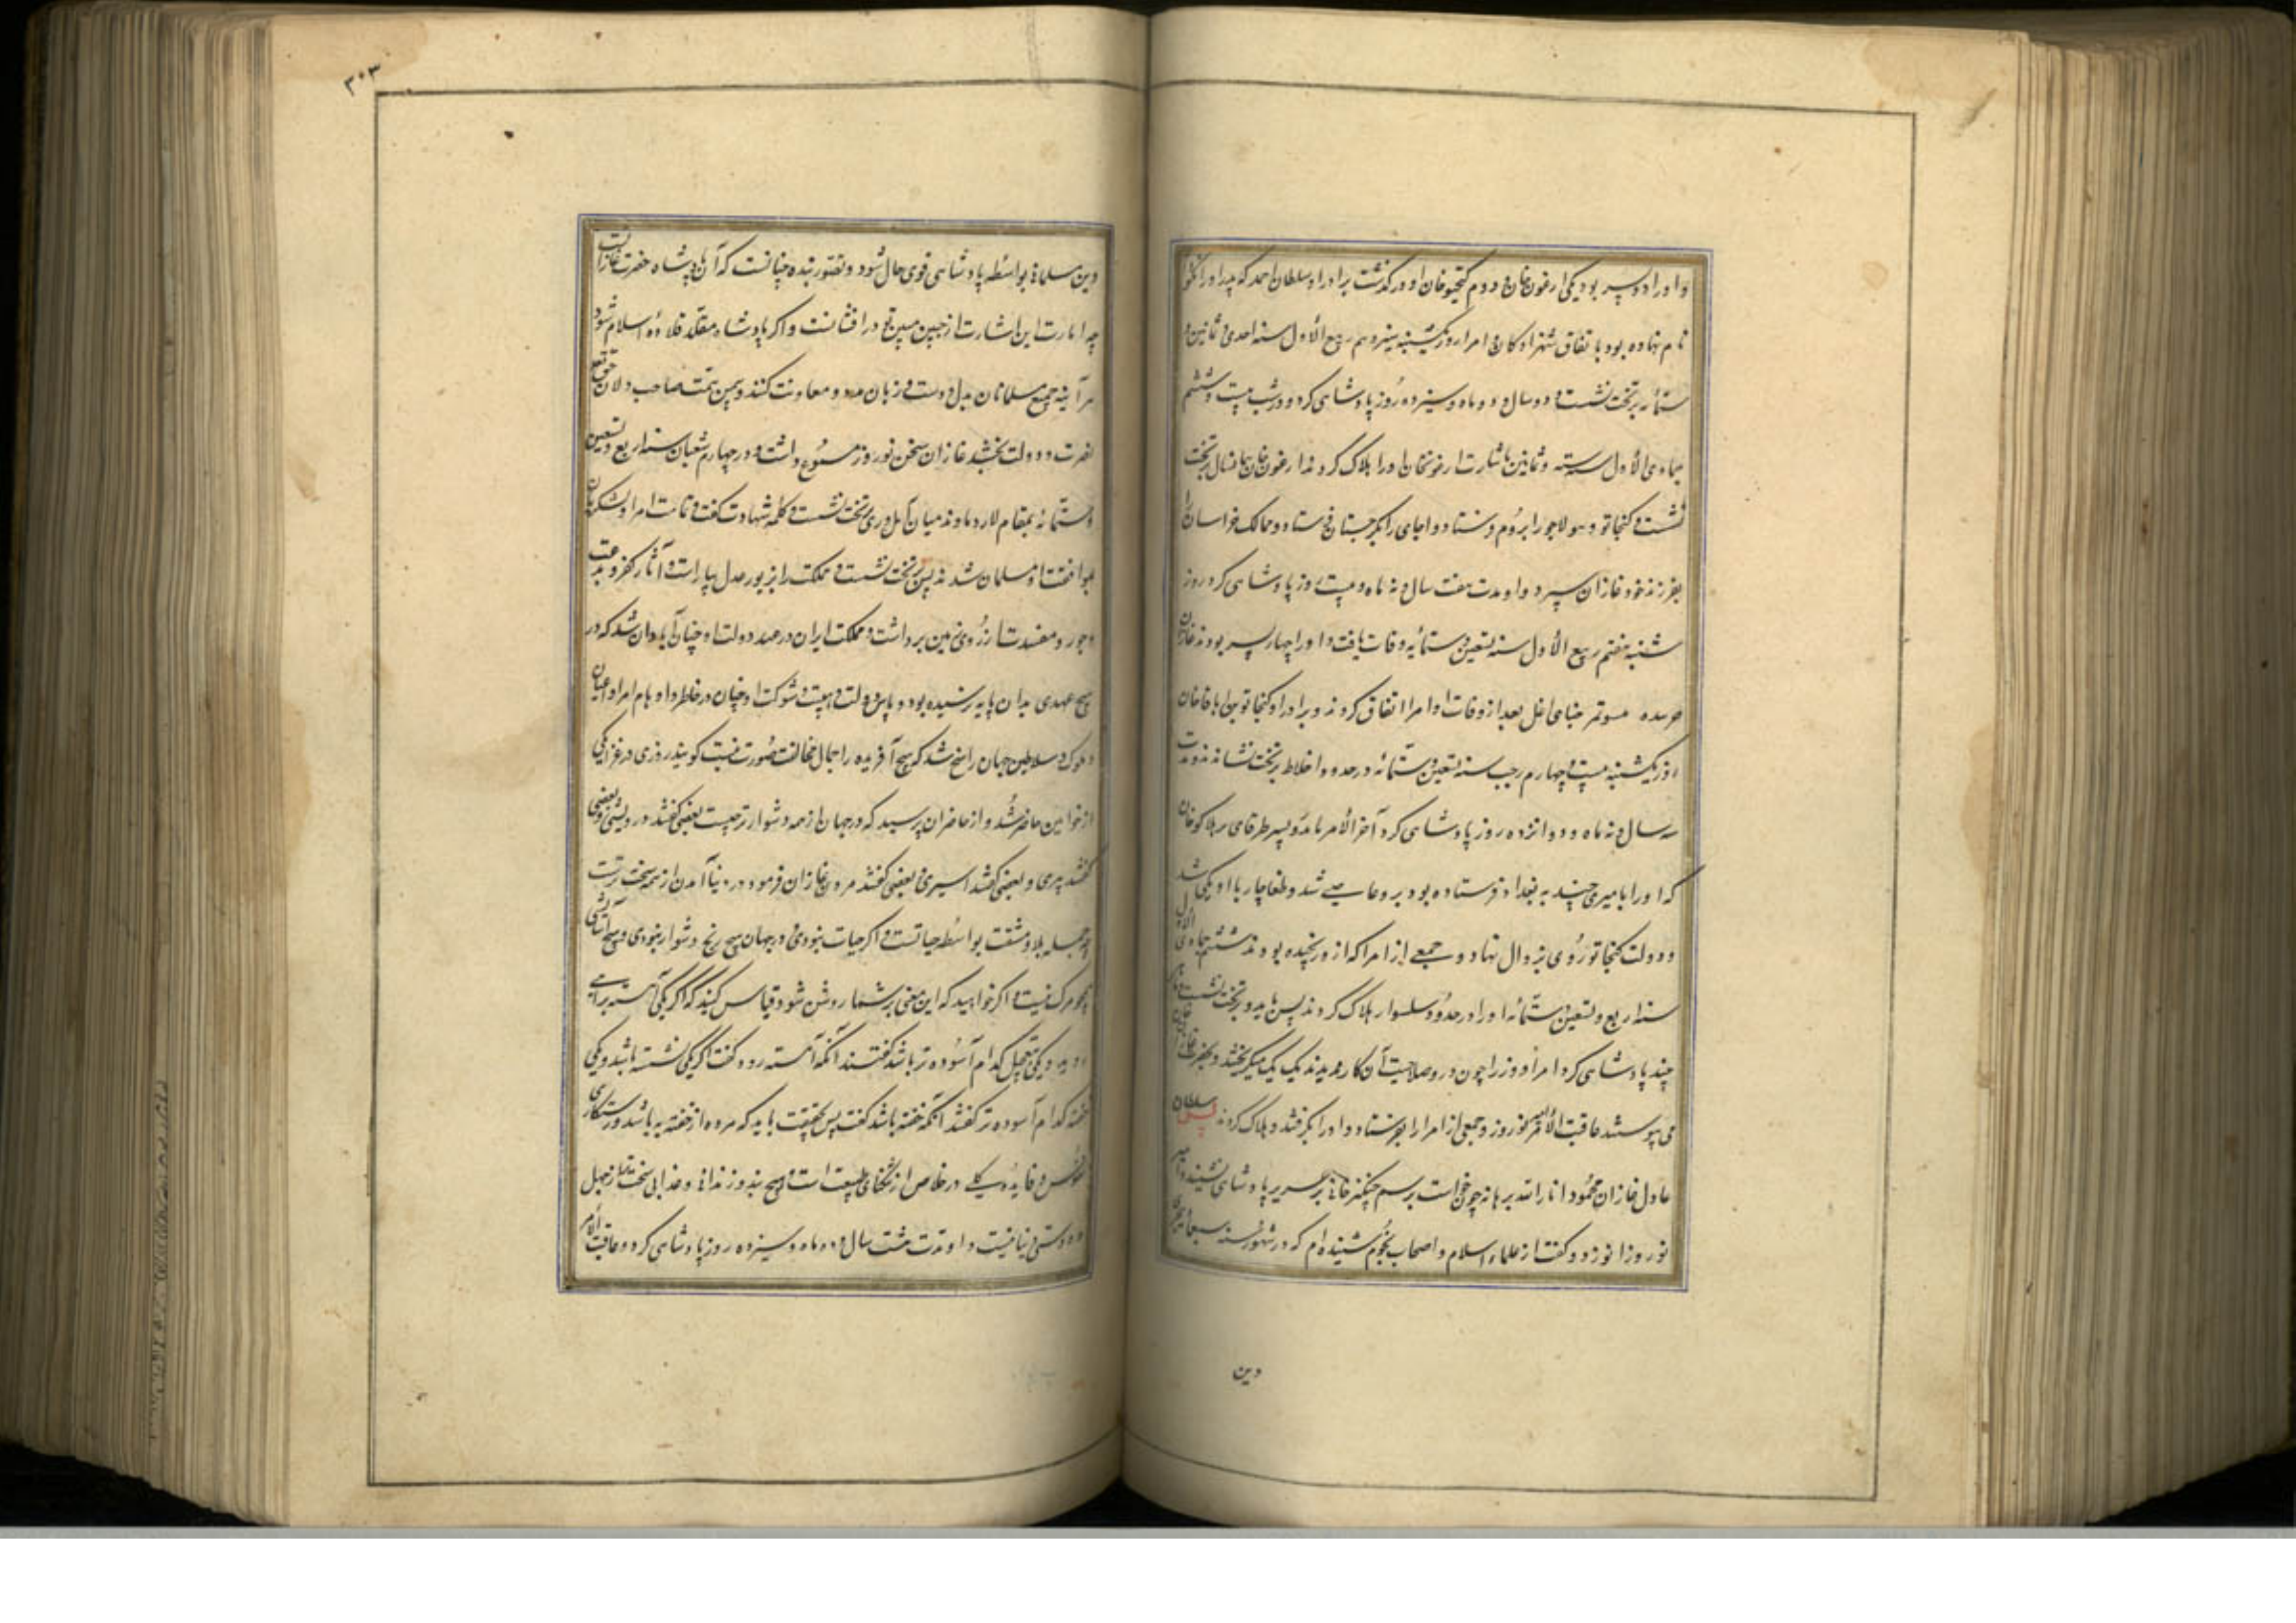 و او را دو پسر بود یکی ارغون خان و دوم کیختوخان و او درگذشت برادر او سلطان احمد که پدر او را نکودار
نام نهاده بود باتفاق شهزادکان و امرا روز یکشنبه سیزدهم ربیع الأول سنه احدی و ثمانین و
ستمائه بر تخت نشست و دو سال و دو ماه و سیزده روز پادشاهی کرد و در شب بیست و ششم
جمادی الأول سنه و ثمانین باشارت ارغونخان او را هلاک کردند ارغون خان هما نسال بر تخت
نشست و کنجاتو و هولاجو را بروم فرستاد و اجای را بکرجستان فرستاد و ممالک خراسان را
بفرزند خود غازان سپرد و او مدت هفت سال و نه ماه و بیست روز پادشاهی کرد روز
شنبه هفتم ربیع الأول سنه تسعین و ستمائه وفات یافت و او را چهار پسر بودند غازان
اغل بعد از وفات او امرا اتفاق کردند و برادر او کنجاتو بن اباقاخان
روز یکشنبه بیست و چهارم رجب سنه تسعین و ستمائه در حدود اخلاط بر تخت نشاندند و مدت
سه سال و نه ماه و دوانزده روز پادشاهی کرد آخر الأمر بایدو پسر طرقای بن هلاکوخان
که او را با میری چند به بغداد فرستاده بود برو عاصی شد و طغاچار با او یکی شد
و دولت کنجاتو روی بزوال نهاد و جمعی از امرا که از و رنجیده بودند ششم جمادی الأول
سنه اربع و تسعین و ستمائه او را در حدود سلسوار هلاک کردند پس بایدو بر تخت نشست و ماهی
چند پادشاهی کرد امرا و وزرا چون در و صلاحیت آن کار ندیدند یک یک میکریختند و بحضرت غازان
می پیوستند عاقبت الأمر امیر نوروز و جمعی از امرا را بفرستاد و او را بکرفتند و هلاک کردند پس سلطان
عادل غازان محمود انار الله برهانه چون خواست برسم چنکیز خانی بر سریر پادشاهی نشیند امیر
نوروز زانو زد و کفت از علماء اسلام و اصحاب نجوم شنیده ام که در شهور سنه سبعمائه هجری
دین
۳۰۳
دین مسلمانی بواسطه پادشاهی قوی حال شود و تصور بنده چنانست که آن پادشاه حضرت غازانست
چه امارت این اشارت از جبین مبین تو درافشانست و اکر پادشاه مقلد قلاده اسلام شود
هر آینه جمیع مسلمانان بدل و دست و زبان مدد و معاونت کنند و بیمن همت صاحب دلان حق تعالی
نصرت و دولت بخشد غازان سخن نوروز مسموع داشت و در چهارم شعبان سنه اربع و تسعین
و ستمائه بمقام لار دماوند میان آمل و ری بر تخت نشست و کلمه شهادت کفت و تمامت امرا و لشکریان
بموافقت او مسلمان شدند پس بر تخت نشست و مملکت را بزیور عدل بیاراست و آثار کفر و بدعت
و جور و مفسدت از روی زمین برداشت و مملکت ایران در عهد دولت او چنان آبادان شد که در
هیچ عهدی بدان پایه نرسیده بود و پاس دولت و هیبت و شوکت او چنان در خاطر و اوهام امرا و اعیان
و ملوک و سلاطین جهان راسخ شد که هیچ آفریده را مجال مخالفت صورت نبست کویند روزی در عزای یکی
از خواتین حاضر شد و از حاضران پرسید که در جهان از همه دشوارتر چیست بعضی کفتند درویشی و بعضی
کفتند پیری و بعضی کفتند اسیری و بعضی کفتند مردن غازان فرمود در دنیا آمدن از همه سخت ترست
چه جمله بلا و مشقت بواسطه حیاتست و اکر حیات نبودی در جهان هیچ رنج و دشوار نبودی و هیچ آسایشی
همچو مرک نیست و اکر خواهید که این معنی بر شما روشن شود قیاس کنید که اکر یکی آهسته براهی
رود و یکی بتعجیل کدام آسوده تر باشد کفتند آنکه آهسته رود کفت اکر یکی نشسته باشد و یکی
خفته کدام آسوده تر کفتند آنکه خفته باشد کفت پس بحقیقت باید که مرده از خفته به باشد و رستکاری
نفوس و فایده کلی در خلاص از تنکنای طبیعت است و هیچ بند و زندانی و عذابی سخت تر از جهل
و دوستی دنیا نیست و او مدت هشت سال و دو ماه و سیزده روز پادشاهی کرد و عاقبت الأمر